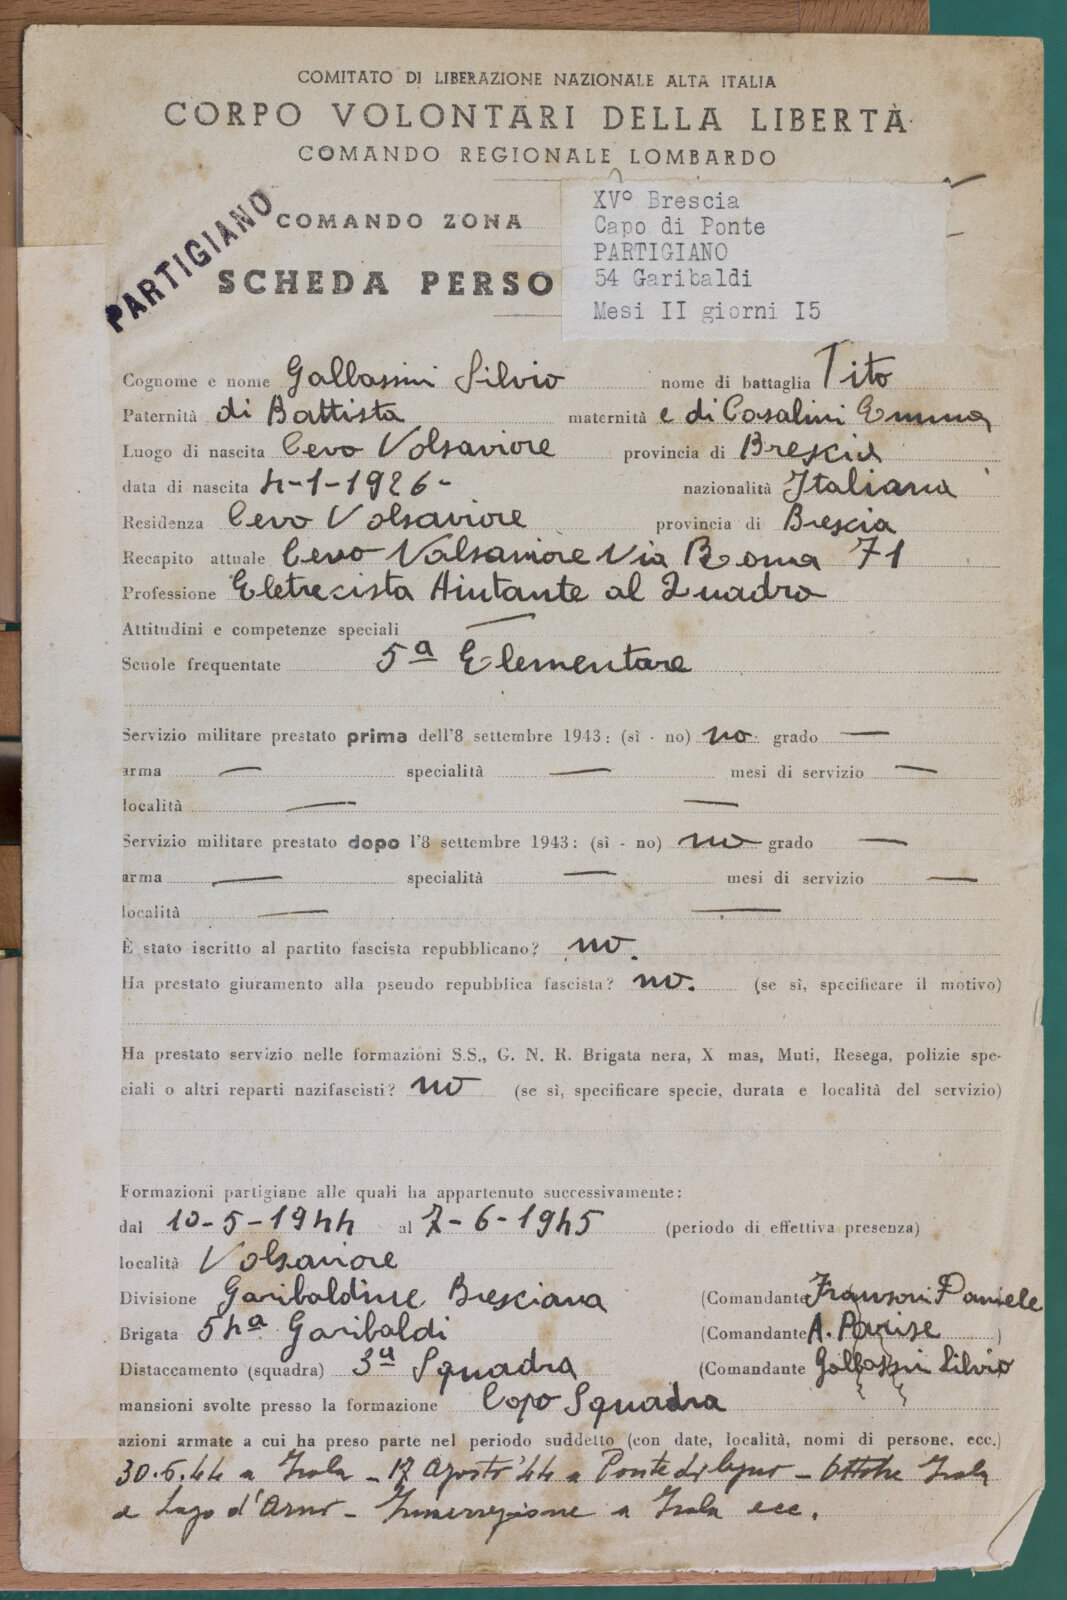 COMITATO DI LIBERAZIONE NAZIONALE ALTA ITALIA
CORPO VOLONTARI DELLA LIBERTÀ
COMANDO REGIONALE LOMBARDO
PARTIGIANO
COMANDO ZONA
SCHEDA PERSO
XV° Brescia
Capo di Ponte
PARTIGIANO
54 Garibaldi
Mesi II giorni I5
Cognome e nome Galbassini Silvio nome di battaglia Tito
Paternità di Battista maternità e di Casalini Emma
Luogo di nascita Cevo Valsaviore provincia di Brescia
data di nascita 4-1-1926- nazionalità Italiana
Residenza Cevo Valsaviore provincia di Brescia
Recapito attuale Cevo Valsaviore Via Roma 71
Professione Eletrecista Aiutante al Quadro
Attitudini e competenze speciali —
Scuole frequentate 5ª Elementare
Servizio militare prestato prima dell'8 settembre 1943: (sì - no) no grado —
arma — specialità — mesi di servizio —
località — —
Servizio militare prestato dopo l'8 settembre 1943: (sì - no) no grado —
arma — specialità — mesi di servizio —
località — —
È stato iscritto al partito fascista repubblicano? no.
Ha prestato giuramento alla pseudo repubblica fascista? no. (se sì, specificare il motivo)
Ha prestato servizio nelle formazioni S.S., G. N. R. Brigata nera, X mas, Muti, Resega, polizie spe-
ciali o altri reparti nazifascisti? no (se sì, specificare specie, durata e località del servizio)
Formazioni partigiane alle quali ha appartenuto successivamente:
dal 10-5-1944 al 7-6-1945 (periodo di effettiva presenza)
località Valsaviore
Divisione Garibaldine Bresciana (Comandante Fransoni Daniele
Brigata 54ª Garibaldi (Comandante A. Parise )
Distaccamento (squadra) 3ª Squadra (Comandante Galbassini Silvio
mansioni svolte presso la formazione Capo Squadra
azioni armate a cui ha preso parte nel periodo suddetto (con date, località, nomi di persone, ecc.)
30.6.44 a Isola - 17 Agosto '44 a Ponte di legno - Ottobre Isola
e Lago d'Arno - Insurrezione a Isola ecc.